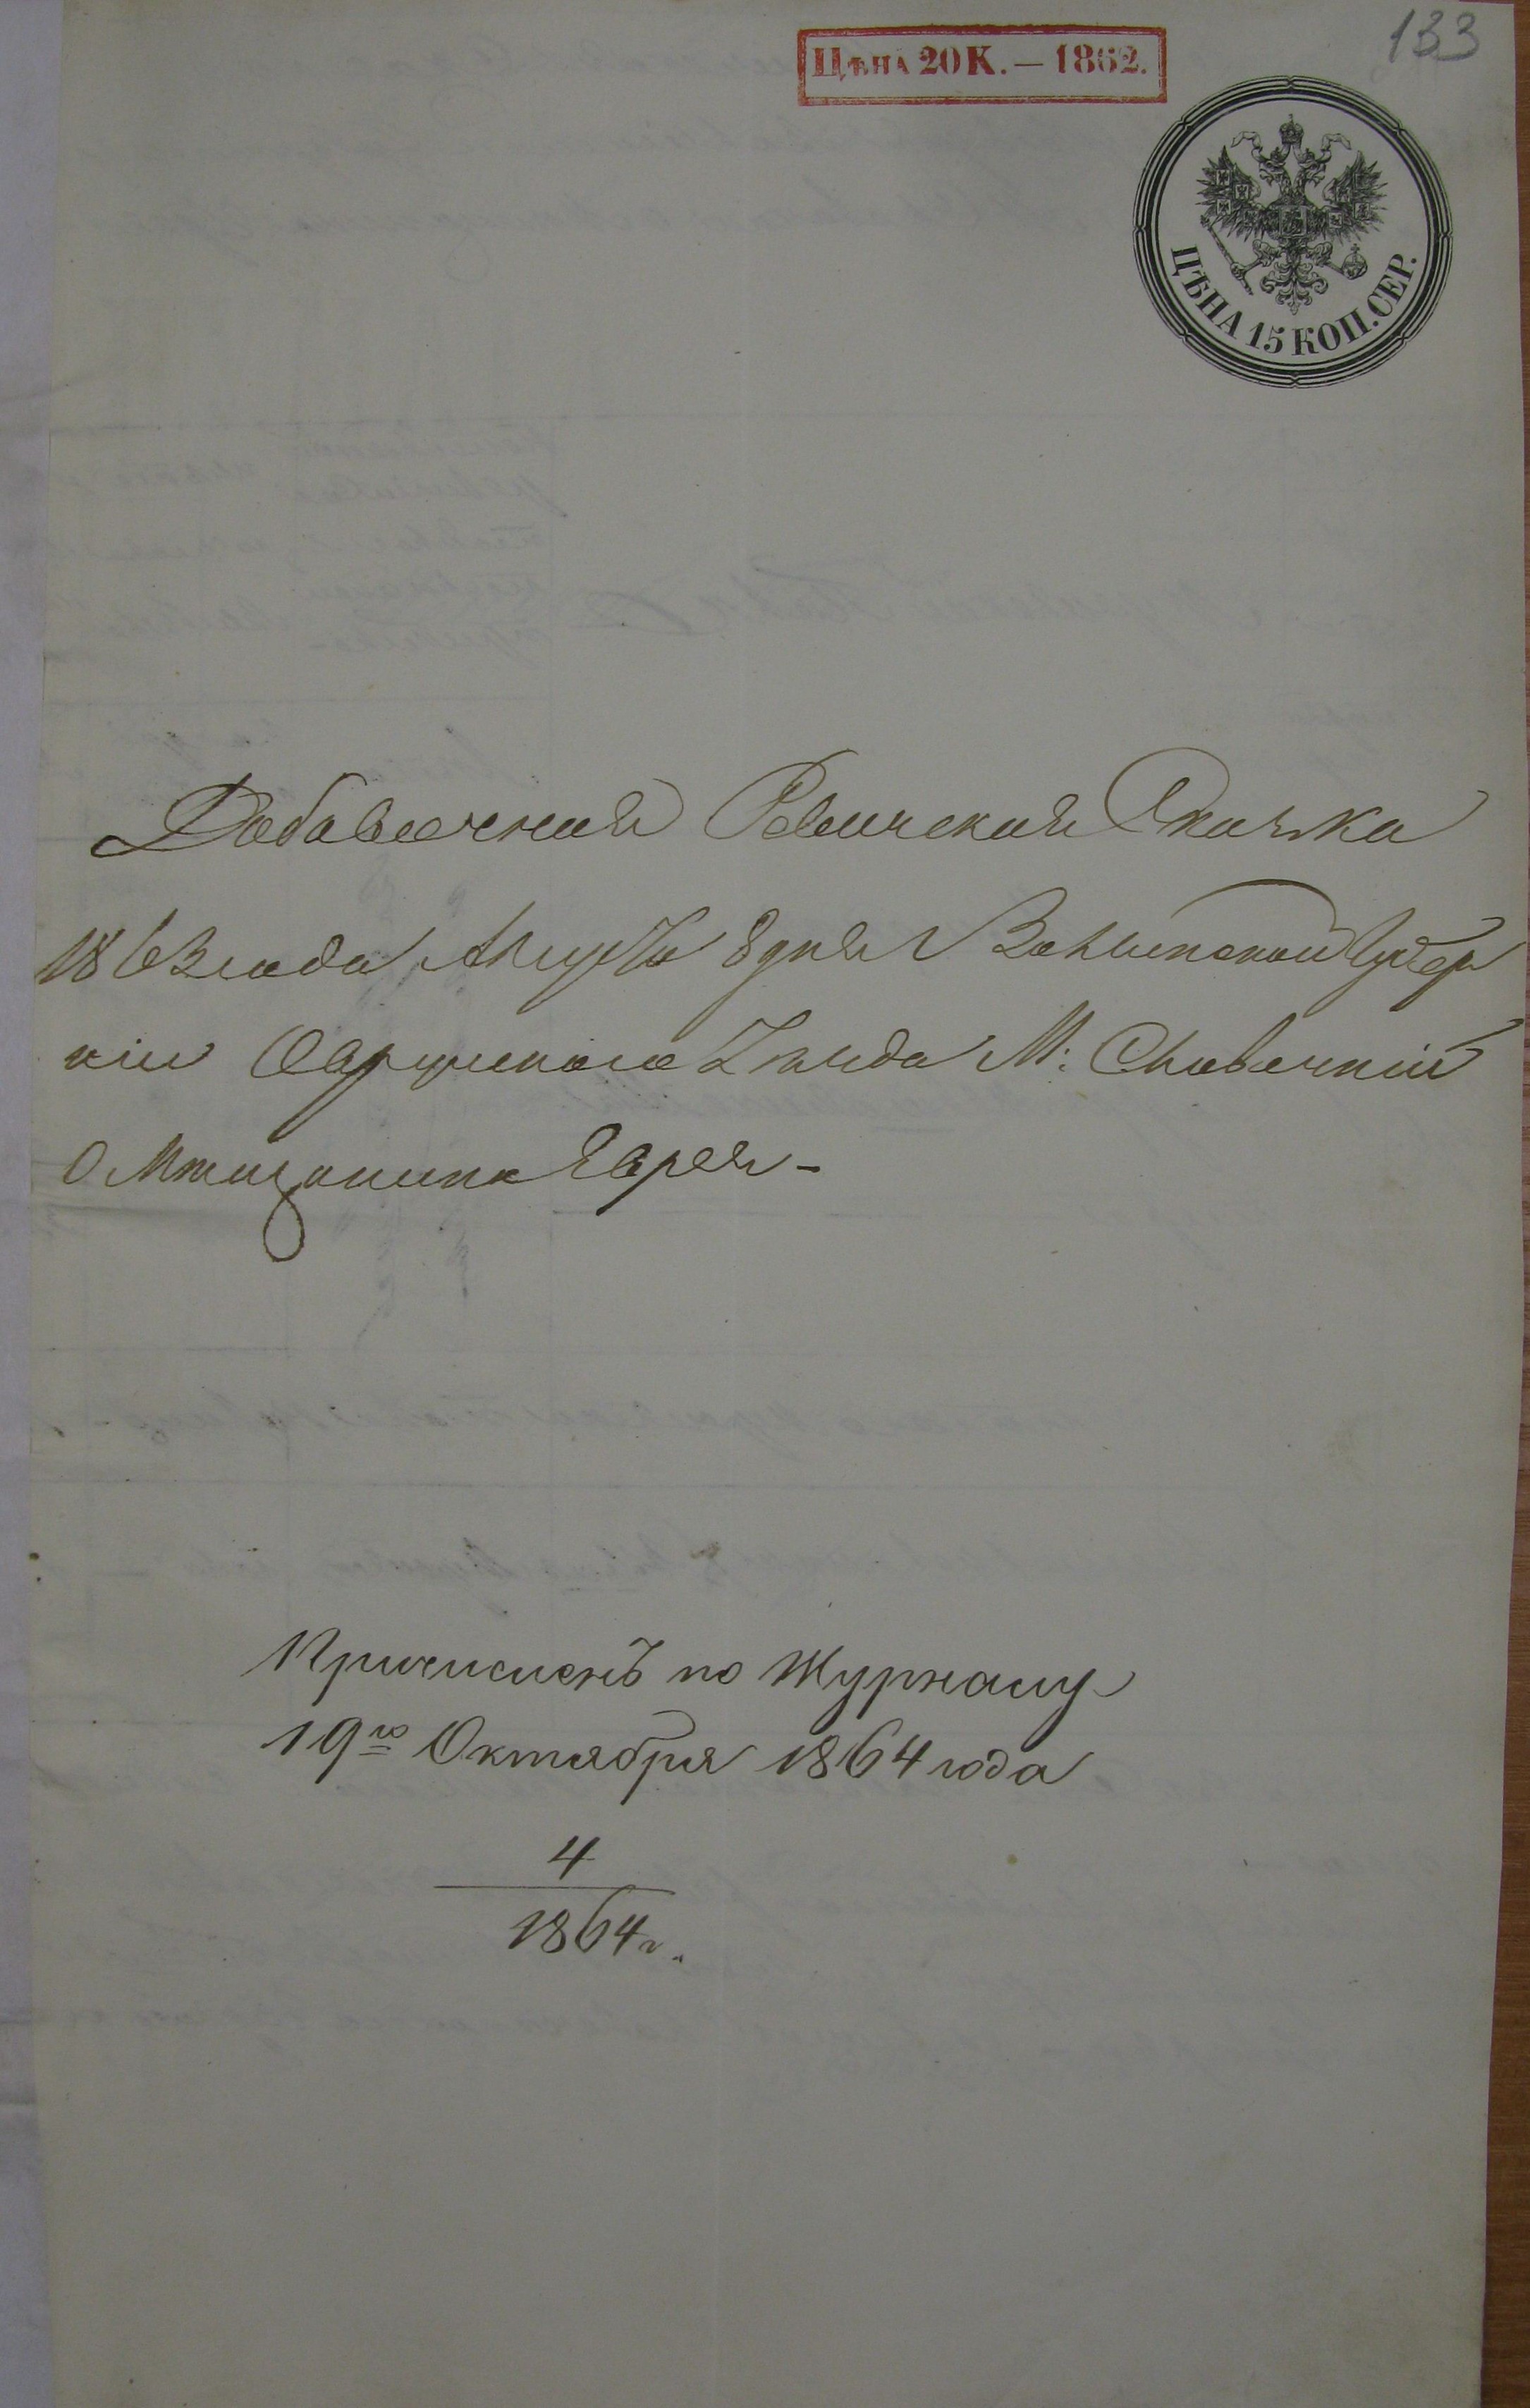 133
Цѣна 20 К. — 1862.
ЦѢНА 15 КОП. СЕР.
Добавочная Ревизская Сказка
1863 года Августа 8 дня Волынской Губер
ніи Овручскаго Уѣзда М: Словечній
О Мѣщанина Еврея -
Причисленъ по Журналу
19го Октября 1864 года
4
1864 г.